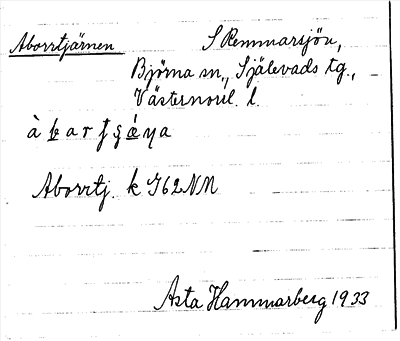 Aborrtjärnen S Remmarsjön,
Björna sn., Själevads tg.,
Västernorrl. l.
Aborrtj. k 762NM
Asta Hammarberg 1933